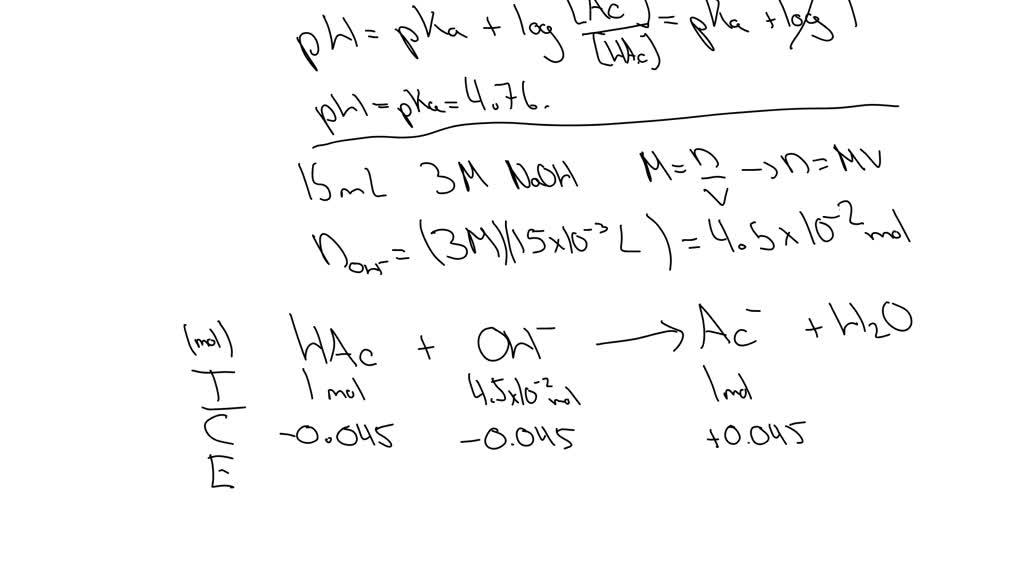 pH = pKa + log [Ac⁻]/[HAc] = pKa + log 1
pH = pKa = 4.76.
15 mL 3M NaOH M = n/V → n = MV
nOH⁻ = (3M)(15x10⁻³ L) = 4.5x10⁻² mol
(mol) HAc + OH⁻ → Ac⁻ + H₂O
I 1 mol 4.5x10⁻² mol 1 mol
C -0.045 -0.045 +0.045
E